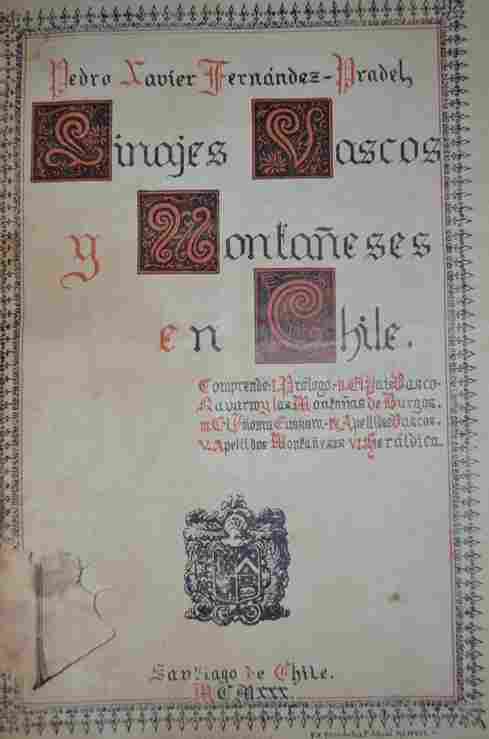 Pedro Xavier Fernández-Pradel
Linajes Vascos
y Montañeses
en Chile.
Comprende: I. Prólogo.-II. El País Vasco-
Navarro y las Montañas de Burgos.
III. El Idioma Euskaro.-IV. Apellidos Vascos.
V. Apellidos Montañeses VI. Heráldica.
Santiago de Chile.
MCMXXX.